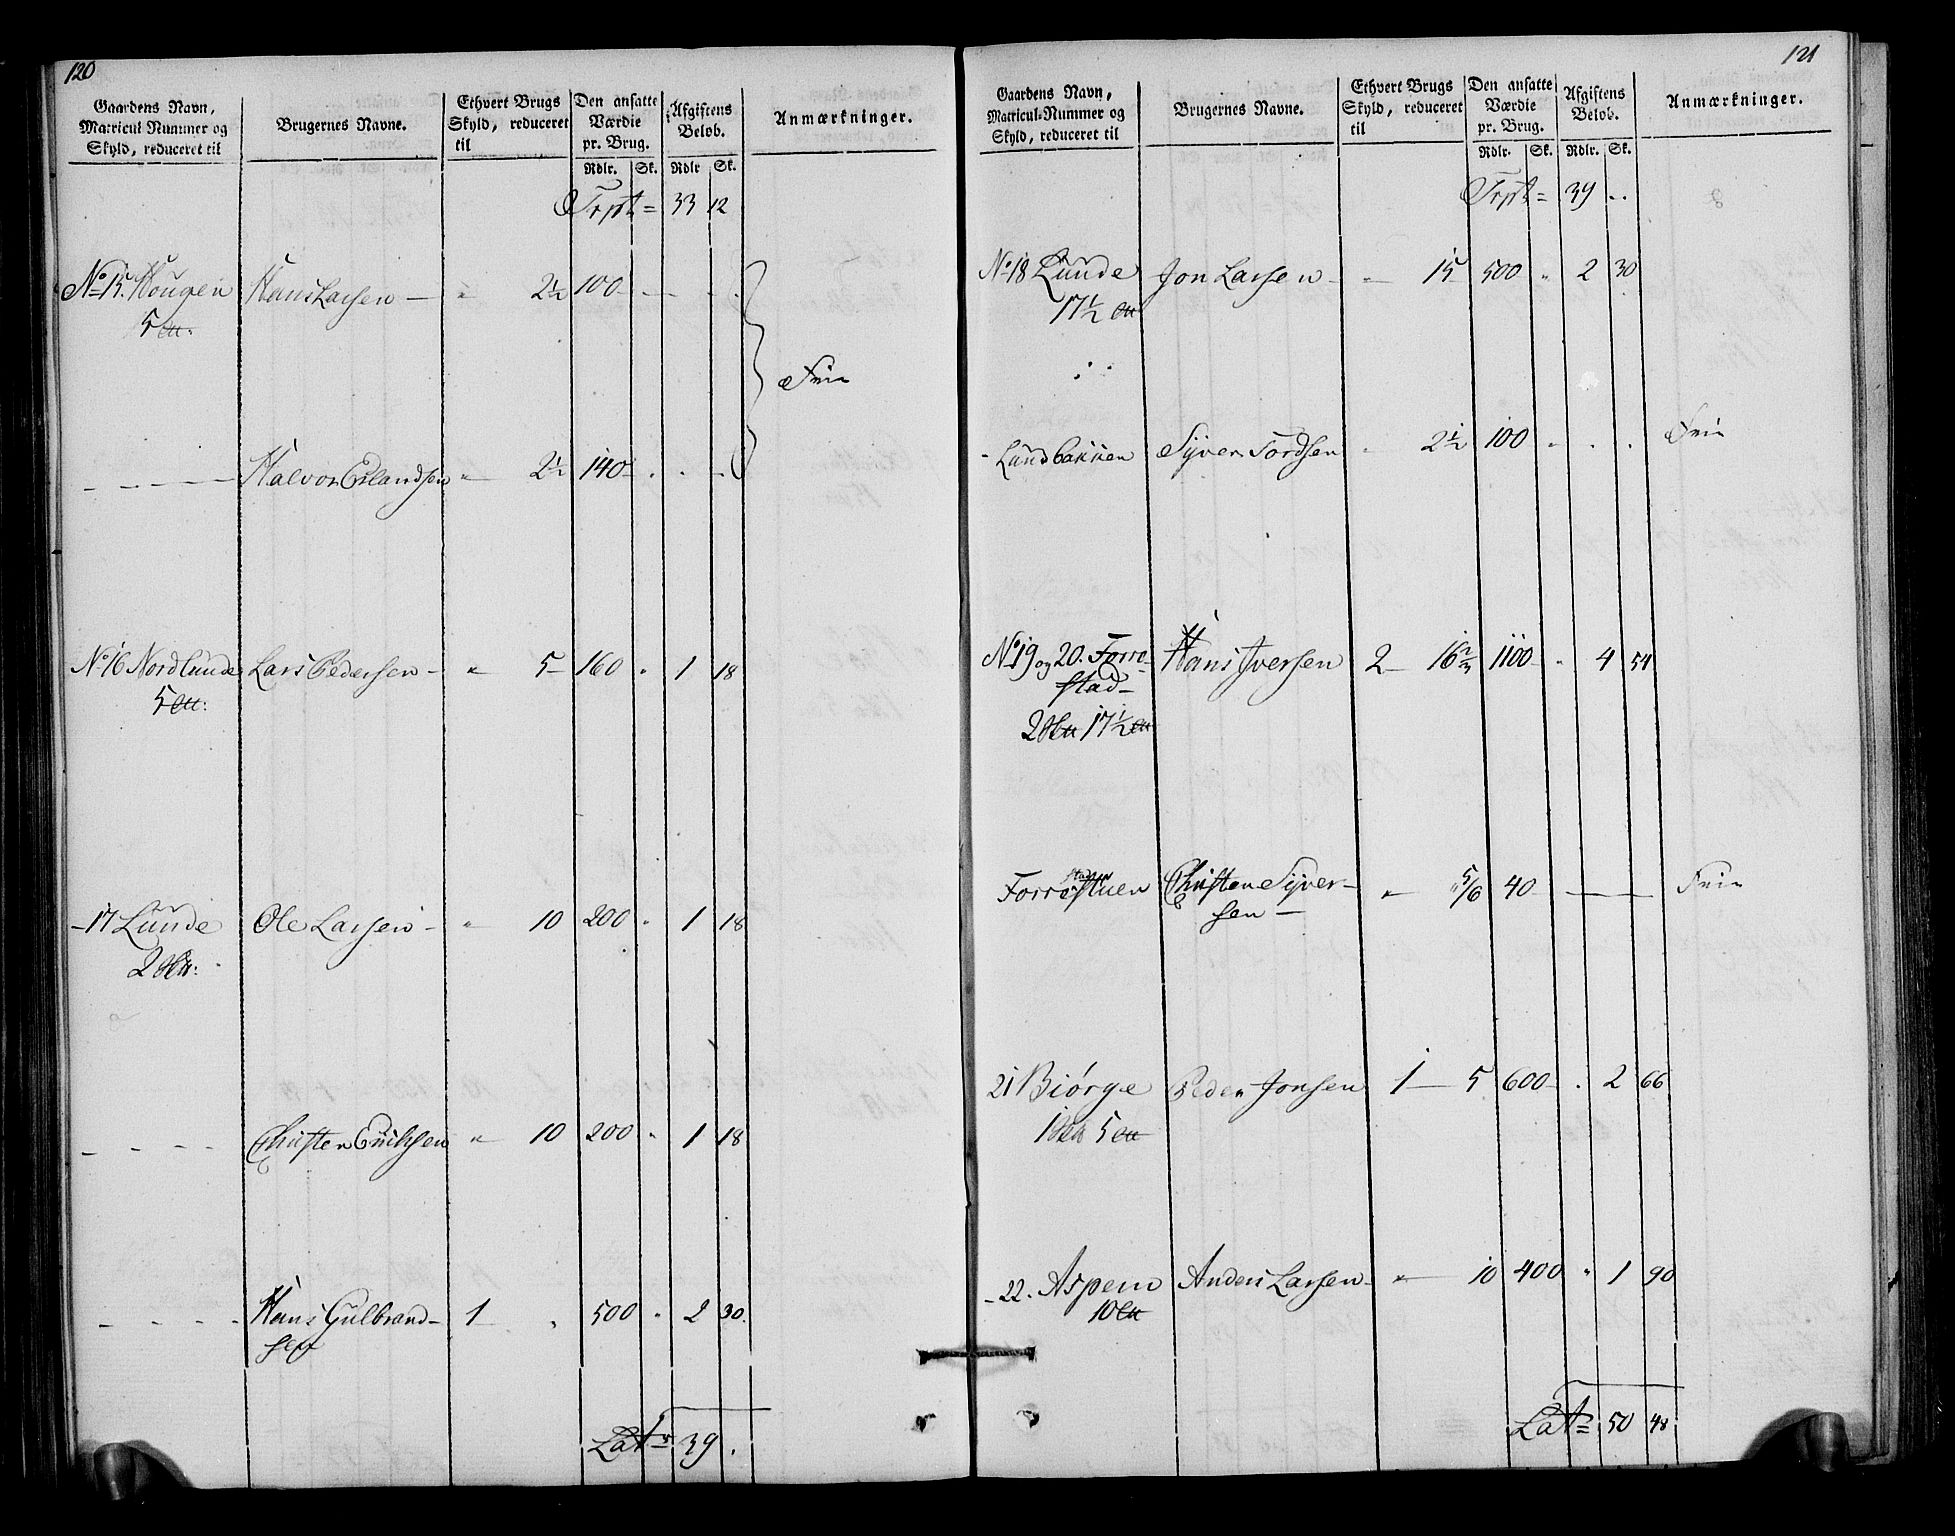 120
Gaardens Navn, Matricul-Nummer og Skyld, reduceret til | Brugernes Navne. | Ethvert Brugs Skyld, reduceret til | Den ansatte Værdie pr. Brug. Rdlr. Sk. | Afgiftens Beløb. Rdlr Sk. | Anmærkninger.
Trpt = 33 12
No 15. Hougen Hans Larsen — " 2½ 100 — — . .
5 
Frie
— — — — Halvor Erlandsen " 2½ 140 . . .
No 16 Nordlunde Lars Pedersen — " 5 160 " 1 18
5 
— 17 Lunde Ole Larsen — " 10 200 " 1 18
2 
— — — — Christen Erichsen " 10 200 " 1 18
— — — — Hans Gulbrand- 1 " 500 " 2 30.
sen
Lat = 39 .
121
Gaardens Navn, Matricul-Nummer og Skyld, reduceret til | Brugernes Navne. | Ethvert Brugs Skyld, reduceret til | Den ansatte Værdie pr. Brug. Rdlr. Sk. | Afgiftens Beløb. Rdlr. Sk. | Anmærkninger.
Trpt = 39 ..
No 18 Lunde Jon Larsen — — 15 500 " 2 30
17½
- Lundbakken Syver Tordsen " 2½ 100 . . . Frie
No 19 og 20. Forre- Hans Iversen 2 — 16⅔ 1100 — " 4 54
stad —
2 17½
Forrestadstuen Christen Syver- " 5/6 40 — — Frie
sen —
21 Biørge Peder Jonsen 1 — 5 600 — . 2 66
1 5
- 22. Aspem Anders Larsen — " 10 400 " 1 90
10
Lat = 50 48